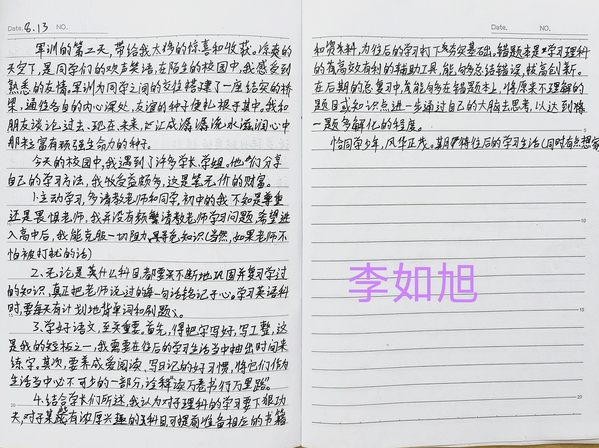 Date. 8.13 NO.
军训的第二天,带给我太多的惊喜和收获。凉爽的
天空下,是同学们的欢声笑语,在陌生的校园中,我感受到
熟悉的友情,军训为同学之间的交往搭建了一座结实的桥
梁,通往各自的内心深处,友谊的种子便扎根于其中。我和
朋友谈论过去、现在、未来,汇成潺潺流水滋润心中
那粒富有顽强生命力的种子。
今天的校园中,我遇到了许多学长、学姐。他们分享
自己的学习方法,我收益颇多,这是笔无价的财富。
1.主动学习,多请教老师和同学,初中的我不知是尊重
还是畏惧老师,我并没有频繁请教老师学习问题,希望进
入高中后,我能克服一切阻力,寻觅知识(当然,如果老师不
怕被打扰的话)
2、无论是英什么科目,都要不断地巩固并复习学过
的知识,真正把老师说过的每一句话铭记于心。学习英语科
时,要每天有计划地背单词和刷题。
3.学好语文,至关重要,首先,得把字写好,写工整,这
是我的短板之一,我需要在往后的学习生活当中抽出时间来
练字。其次,要养成爱阅读、写日记的好习惯,将它们作为
生活当中必不可少的一部分,诠释“读万卷书行万里路”。
4.结合学长们所述,我认为对于理科的学习要下狠功
夫,对于某些有浓厚兴趣的科目可提前准备相应的书籍
Date. NO.
和资料,为往后的学习打下夯实基础,错题本是学习理科
的有高效有利的辅助工具,能够总结错误,拔高创新。
在后期的总复习中,友能够在错题本上,将原来不理解的
题目或知识点进一步通过自己的大脑去思考,以达到
一题多解化的程度。
恰同学少年,风华正茂。期待往后的学习生活(同时有点想家
李如旭